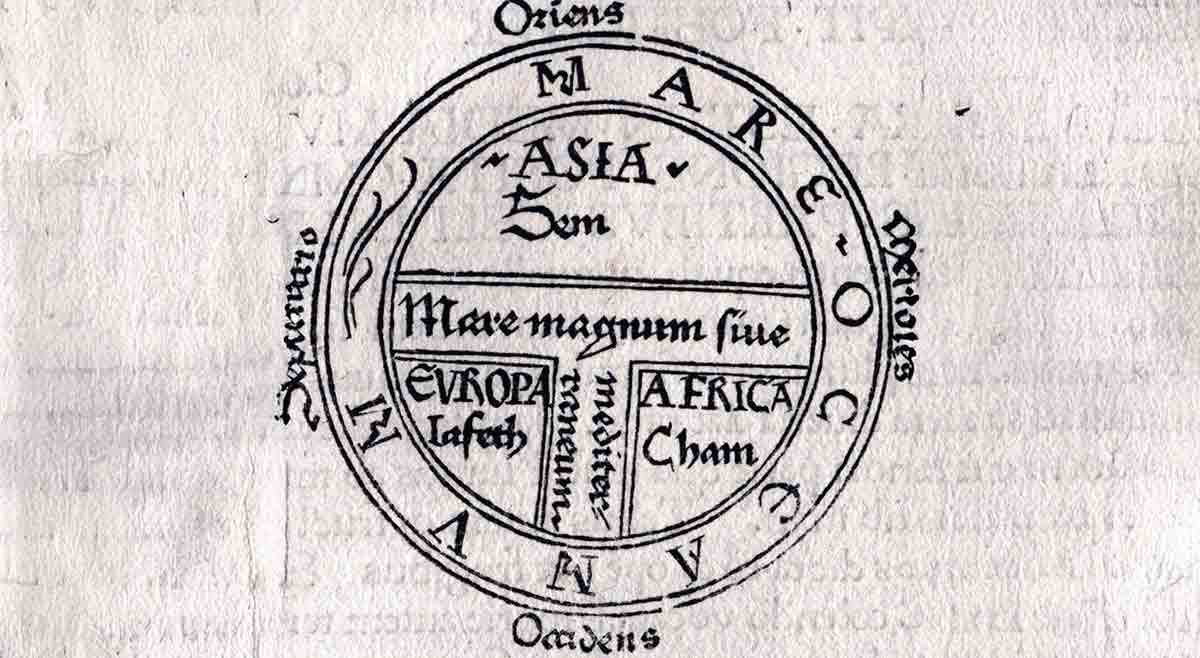 Oriens
MARE ~ OCEANVM
~ ASIA ~
Sem
Mare magnum siue
EVROPA
Iafeth
mediter=
raneum
AFRICA
Cham
Meridies
Occidens